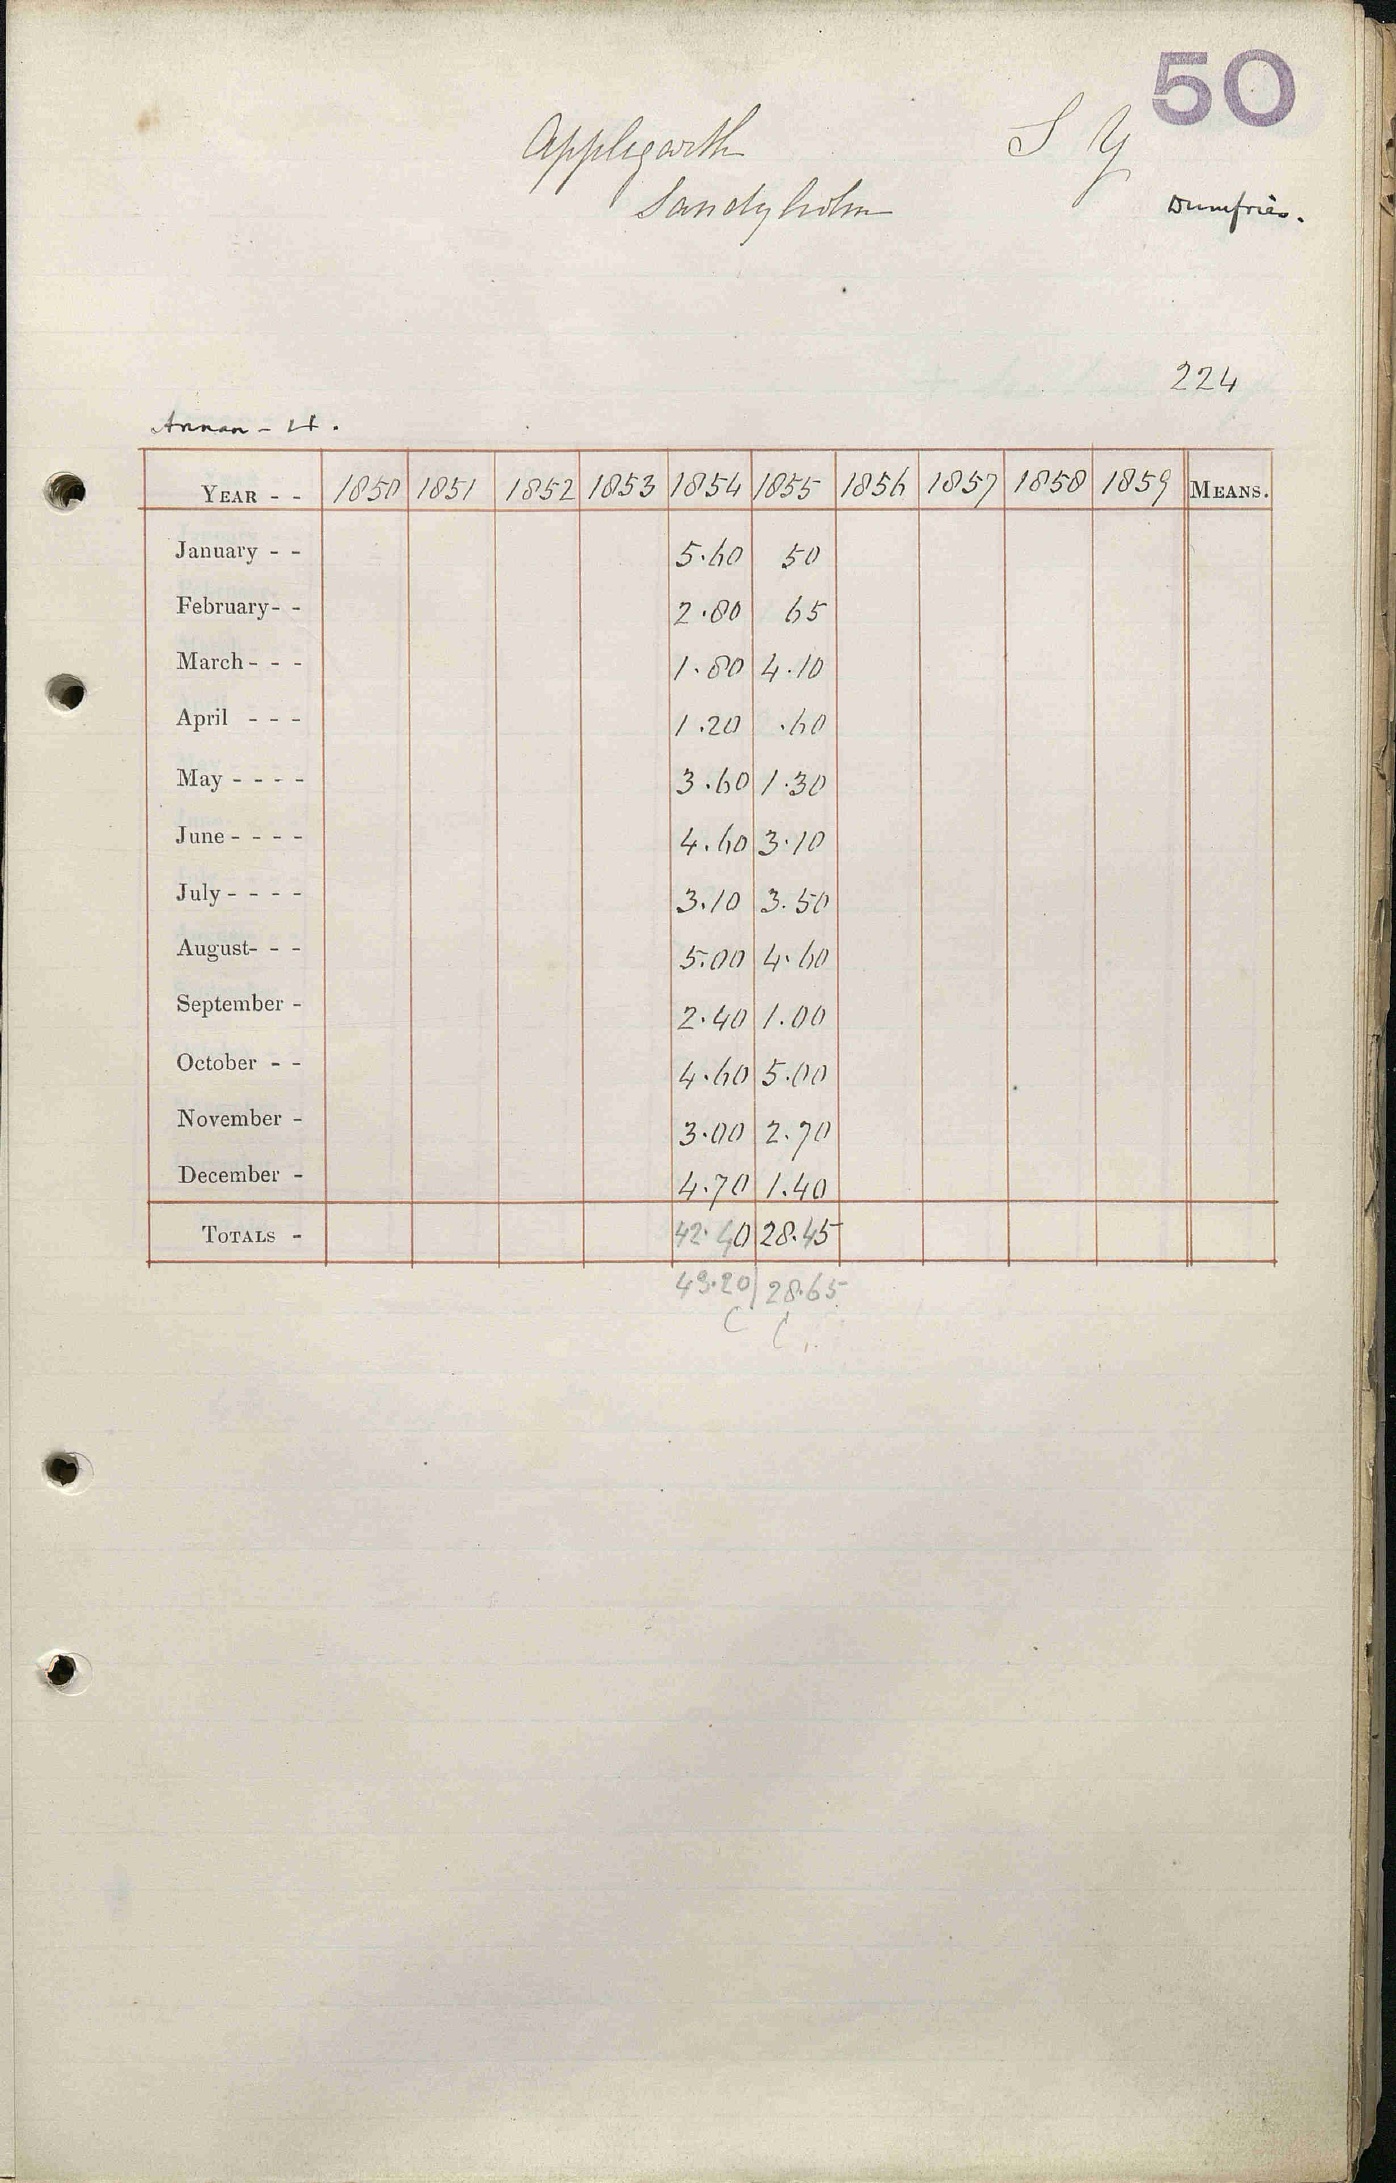 50
Applegarth S Y
Sandyholm Dumfries.
224
YEAR - - 1850 1851 1852 1853 1854 1855 1856 1857 1858 1859 MEANS.
January - - 5.60 50
February- - 2.80 65
March - - - 1.80 4.10
April - - - 1.20 .60
May - - - - 3.60 1.30
June - - - - 4.60 3.10
July - - - - 3.10 3.50
August- - - 5.00 4.60
September - 2.40 1.00
October - - 4.60 5.00
November - 3.00 2.70
December - 4.70 1.40
TOTALS - 42.40 28.45
28.65